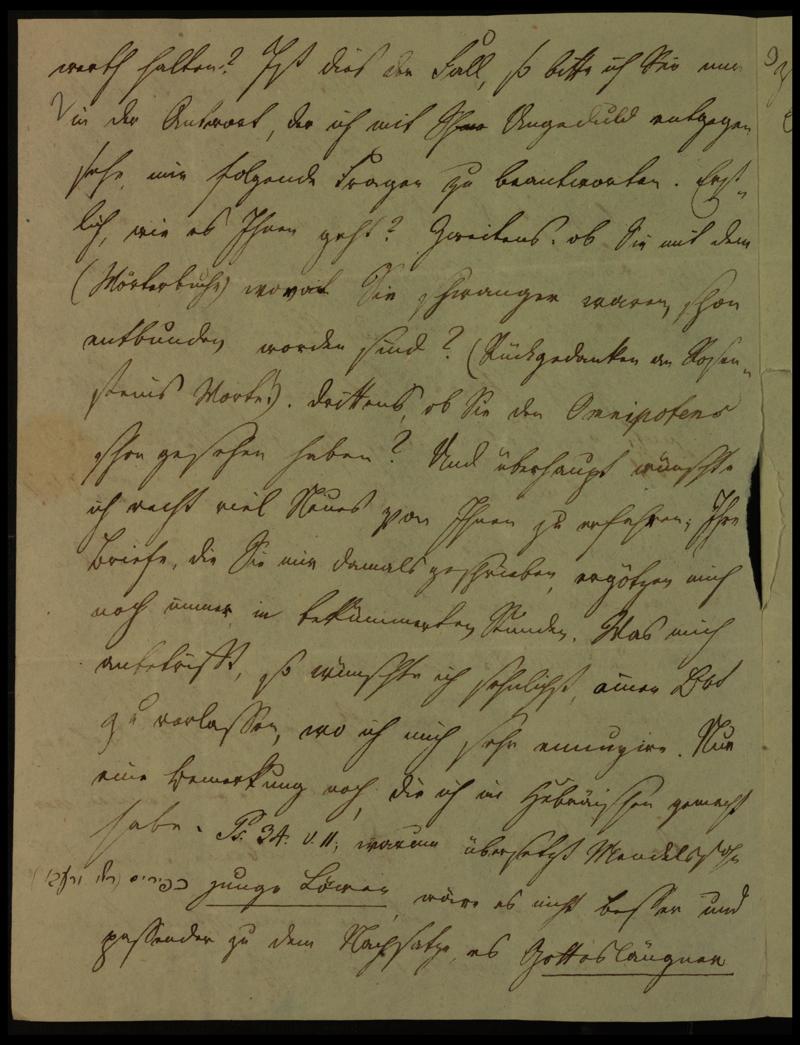 werth halten? Ist dies der Fall, so bitte ich Sie nur
in der Antwort, der ich mit Ungeduld entgegen
sehe, mir folgende Fragen zu beantworten. Erst-
lich, wie es Ihnen geht? Zweitens, ob Sie mit dem
(Wörterbuche) womit Sie schwanger waren, schon
entbunden worden sind? (Rückgedanken an Rosen-
steins Worte!). drittens, ob Sie den Omnipotens
schon gesehen haben? Und überhaupt wünschte
ich recht viel Neues von Ihnen zu erfahren; Ihre
Briefe, die Sie mir damals geschrieben, ergötzen mich
noch immer in bekümmerten Stunden. Was mich
anbetrifft, so wünschte ich sehnlichst, einen Ort
zu verlassen, wo ich mich sehr ennuyire. Nur
eine Bemerkung noch, die ich im Hebräischen gemacht
habe. Ps. 34. v. 11; warum übersetzt Mendelssohn
כפירים junge Löwen, wäre es nicht besser und
passender zu dem Nachsatze, es Gottesläugner